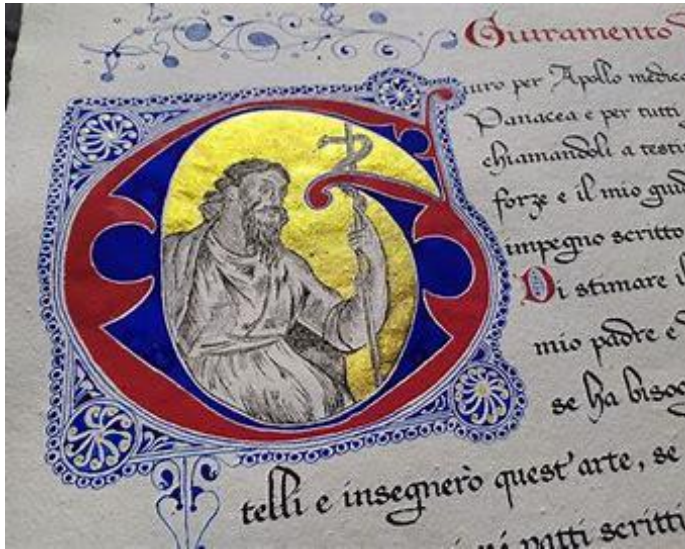 Giuramento
iuro per Apollo medico
Panacea e per tutti
chiamandoli a testi
forze e il mio giud
impegno scritto
Di stimare il
mio padre e
se ha bisog
telli e insegnerò quest'arte, se
patti scritti